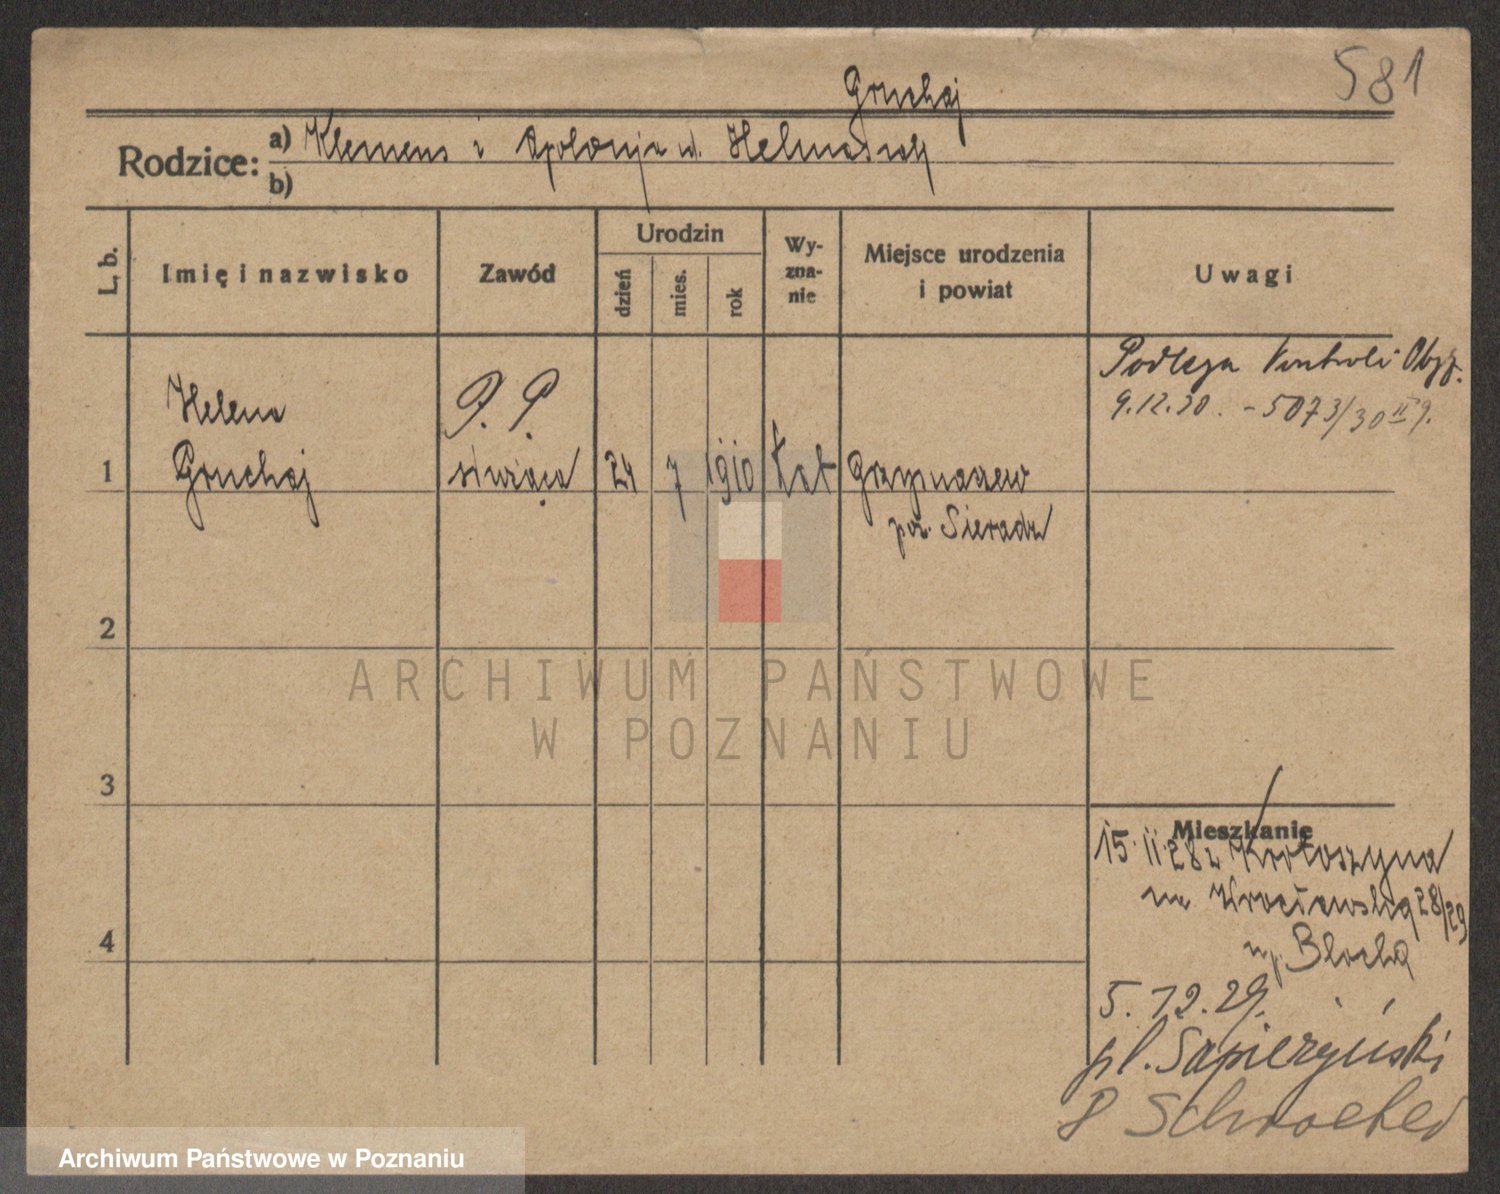 581
Gruchaj
Rodzice: a) Klemens i Apolonja
b)
L. b.
Imię i nazwisko
Zawód
Urodzin
dzień
mies.
rok
Wy-
zna-
nie
Miejsce urodzenia
i powiat
Uwagi
Podlega Kontroli Obycz.
9.12.30. - 5073/30 II
Helena
Gruchaj
P. P.
służąca
24
7
1910
kat
pow. Sieradz
1
2
3
4
ARCHIWUM PAŃSTWOWE
W POZNANIU
Mieszkanie
15. 11. 28 z Krotoszyna
na Wrocławską 28/29
5. 12. 29.
pl. Sapieżyński
Archiwum Państwowe w Poznaniu